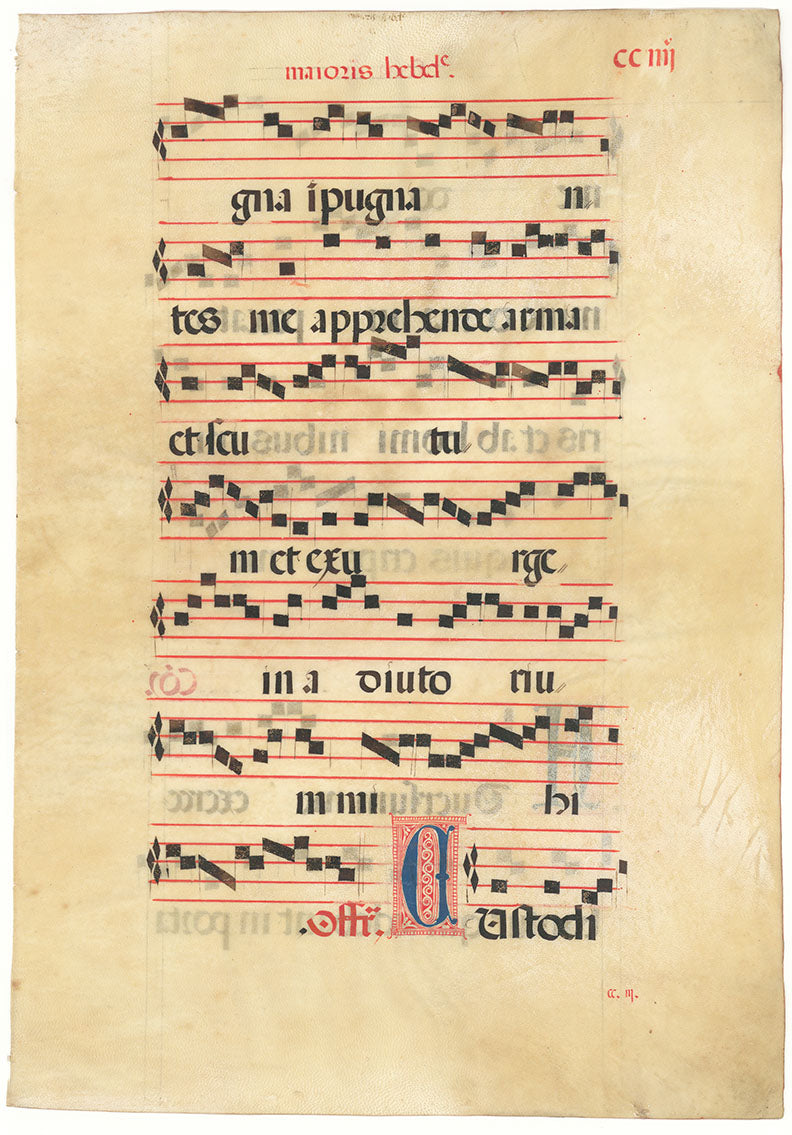 maioris hebdc.
CC iiij
gna ipugna n
tes me apprehende arma
et scu tu
m et exu rge
in a diuto riu
m mi hi
.Offr. C Ustodi
cc. iij.